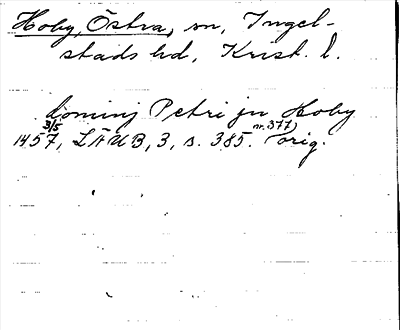 Hoby, Östra, sn, Ingel-
stads hd, Krist. l.
domini Petri jn Hoby
3/5 nr. 377)
1457, LÄUB, 3, s. 385. orig.